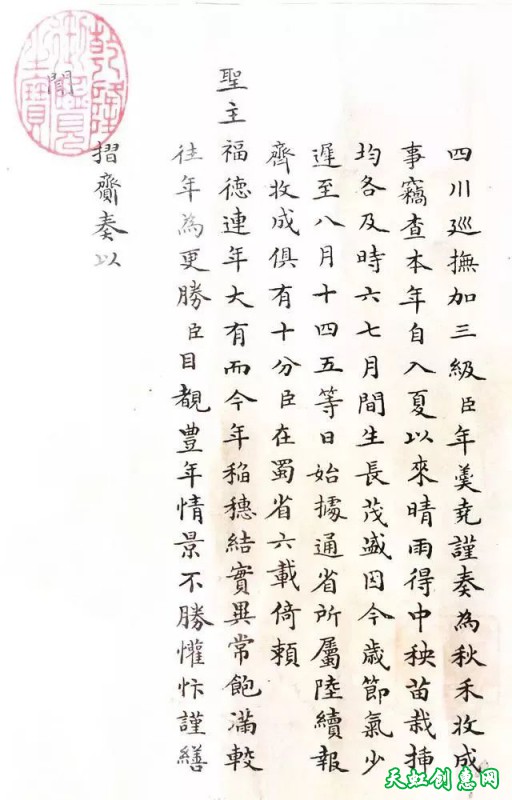 四川巡撫加三級臣年羹堯謹奏為秋禾收成
事竊查本年自入夏以來晴雨得中秧苗栽插
均各及時六七月間生長茂盛因今歲節氣少
遲至八月十四五等日始據通省所屬陸續報
齊收成俱有十分臣在蜀省六載倚賴
聖主
福德連年大有而今年稻穗結實異常飽滿較
往年為更勝臣目覩豊年情景不勝懽忭謹繕
摺齎奏以
聞
乾隆御覽之寶
天虹创惠网